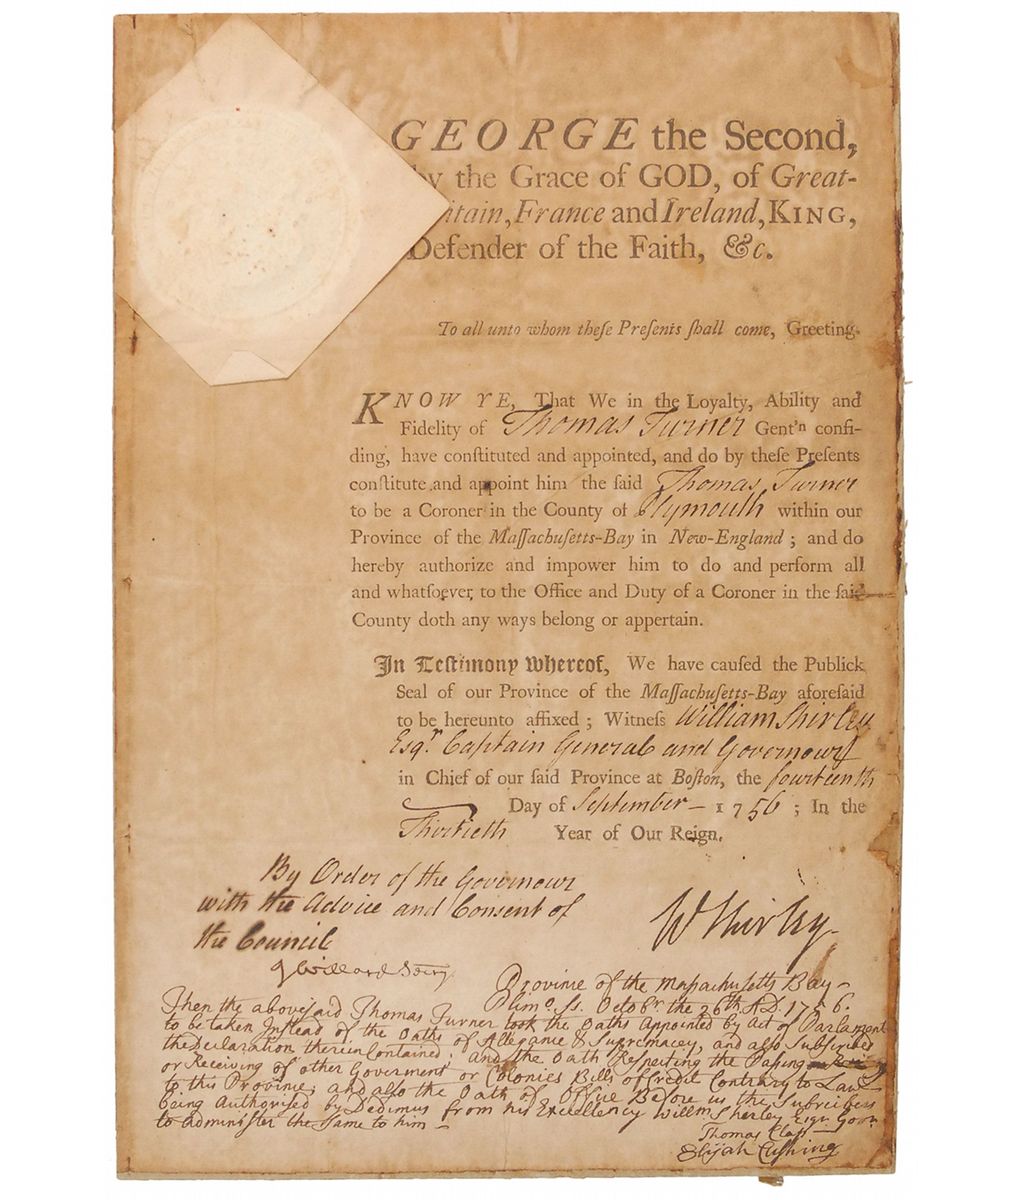 GEORGE the Second,
by the Grace of GOD, of Great-
itain, France and Ireland, KING,
Defender of the Faith, &c.
To all unto whom theſe Preſents ſhall come, Greeting.
KNOW YE, That We in the Loyalty, Ability and
Fidelity of Thomas Turner Gent'n confi-
ding, have conſtituted and appointed, and do by theſe Preſents
conſtitute and appoint him the ſaid Thomas Turner
to be a Coroner in the County of Plymouth within our
Province of the Maſſachuſetts-Bay in New-England; and do
hereby authorize and impower him to do and perform all
and whatſoever, to the Office and Duty of a Coroner in the ſaid
County doth any ways belong or appertain.
In Teſtimony Whereof, We have cauſed the Publick
Seal of our Province of the Maſſachuſetts-Bay aforeſaid
to be hereunto affixed; Witneſs William Shirley
Esqr. Captain General and Governour
in Chief of our ſaid Province at Boſton, the fourteenth
Day of September - 1756; In the
Thirtieth Year of Our Reign.
By Order of the Governour
with the Advice and Consent of
the Council
J Willard Secry.
W Shirley.
Province of the Massachusetts Bay -
Plimo. Ss. Octobr. the 26th A.D. 1756.
Then the abovesaid Thomas Turner took the Oaths Appointed by Act of Parlament
to be taken Instead of the Oaths of Allegance & Supremacey, and also Subscribed
the Declaration therein Contained: and the Oath Respecting the Passing
or Receiving of other Goverment or Colonies Bills of Credit Contrary to Law
to this Province, and also the Oath of Office Before us the Subscribers
being Authorised by Dedimus from his Excellency Willm Sherley Esqr. Govr.
to administer the Same to him -
Thomas Clap
Elijah Cushing